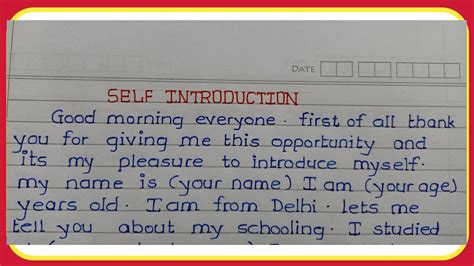 DATE
SELF INTRODUCTION
Good morning everyone. first of all thank
you for giving me this opportunity and
its my pleasure to introduce myself.
my name is (your name) I am (your age)
years old. I am from Delhi. lets me
tell you about my schooling. I studied